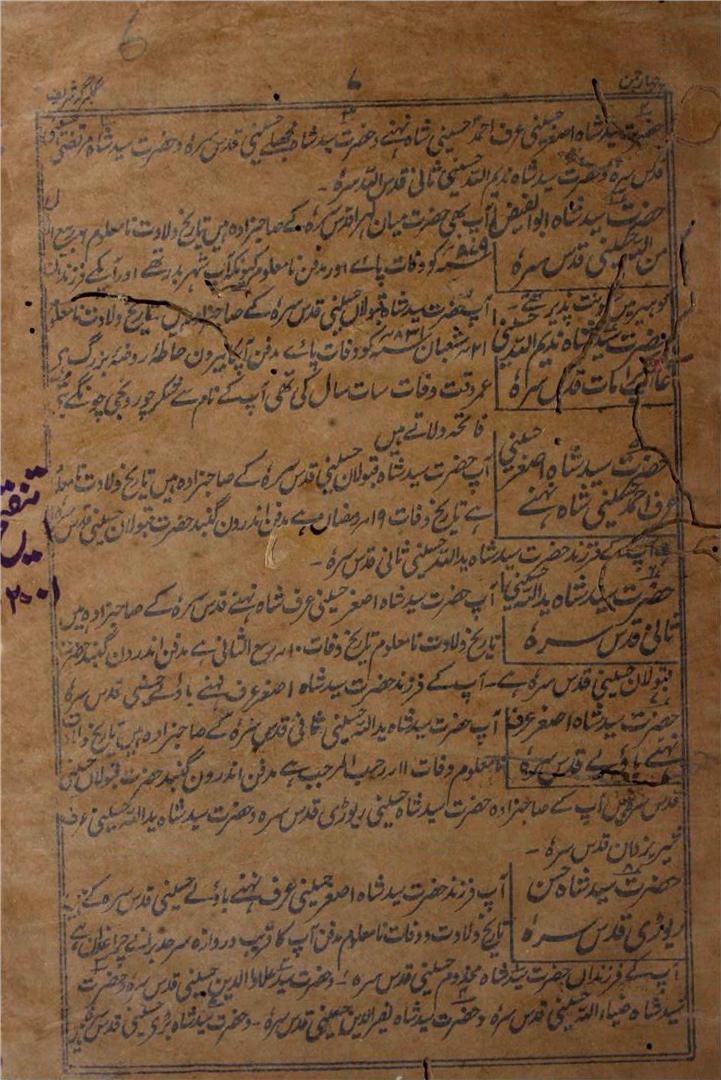 6
گلبرگہ شریف ۷
حضرت سید شاہ اصغر حسینی عرف احمد حسینی شاہ نہنے و حضرت سید شاہ مجھلے حسینی قدس سرہٗ و حضرت سید شاہ مرتضیٰ حسینی
قدس سرہٗ و حضرت سید شاہ ندیم اللہ حسینی ثانی قدس اللہ سرہٗ۔
حضرت سید شاہ ابو الفیض آپ بھی حضرت میاں لہرا قدس سرہٗ کے صاحبزادہ ہیں تاریخ ولادت نامعلوم ۶ ربیع
من اللہ حسینی قدس سرہٗ ۸۷۹ کو وفات پائے اور مدفن نامعلوم کیونکہ آپ شہر بدر تھے اور آپ کے فرزند
سکونت پذیر تھے۔ آپ حضرت سید شاہ قبولاں حسینی قدس سرہٗ کے صاحبزادہ ہیں۔ تاریخ ولادت نامعلوم
حضرت سید شاہ ندیم اللہ حسینی ۲۱ شعبان ۸۳۱ کو وفات پائے مدفن آپکا بیرون احاطہ روضۂ بزرگ
کرامات قدس سرہٗ عمر وقت وفات سات سال کی تھی آپ کے نام سے شکر چور و کجی چونگے
فاتحہ دلاتے ہیں
حضرت سید شاہ اصغر حسینی آپ حضرت سید شاہ قبولاں حسینی قدس سرہٗ کے صاحبزادہ ہیں تاریخ ولادت نامعلوم
عرف احمد حسینی شاہ نہنے ہے تاریخ وفات ۱۹ رمضان ہے مدفن اندرون گنبد حضرت قبولاں حسینی قدس سرہٗ
آپ کے فرزند حضرت سید شاہ ید اللہ حسینی ثانی قدس سرہٗ۔
حضرت سید شاہ ید اللہ حسینی آپ حضرت سید شاہ اصغر حسینی عرف شاہ نہنے قدس سرہٗ کے صاحبزادہ ہیں
ثانی قدس سرہٗ تاریخ ولادت نامعلوم تاریخ وفات ۱۰ ربیع الثانی ہے مدفن اندرون گنبد حضرت
قبولاں حسینی قدس سرہٗ ہے۔ آپ کے فرزند حضرت سید شاہ اصغر عرف نہنے باؤلے حسینی قدس سرہٗ
حضرت سید شاہ اصغر عرف آپ حضرت سید شاہ ید اللہ حسینی ثانی قدس سرہٗ کے صاحبزادہ ہیں تاریخ ولادت
نہنے باؤلے قدس سرہٗ نامعلوم وفات ۱۱ رجب المرجب ہے مدفن اندرون گنبد حضرت قبولاں حسینی
قدس سرہٗ میں آپ کے صاحبزادہ حضرت سید شاہ حسینی ریوڑی قدس سرہ و حضرت سید شاہ ید اللہ حسینی عرف
قدس سرہٗ۔
حضرت سید شاہ حسن آپ فرزند حضرت سید شاہ اصغر حسینی عرف نہنے باؤلے حسینی قدس سرہ کے ہیں
ریوڑی قدس سرہٗ تاریخ ولادت و وفات نامعلوم مدفن آپ کا قریب دروازہ
آپ کے فرزنداں حضرت سید شاہ مخدوم حسینی قدس سرہٗ۔ و حضرت سید علاؤ الدین حسینی قدس سرہٗ و حضرت
سید شاہ ضیاء اللہ حسینی قدس سرہٗ و حضرت سید شاہ نصر الدین حسینی قدس سرہٗ۔ و حضرت سید شاہ بڑی حسینی قدس سرہٗ